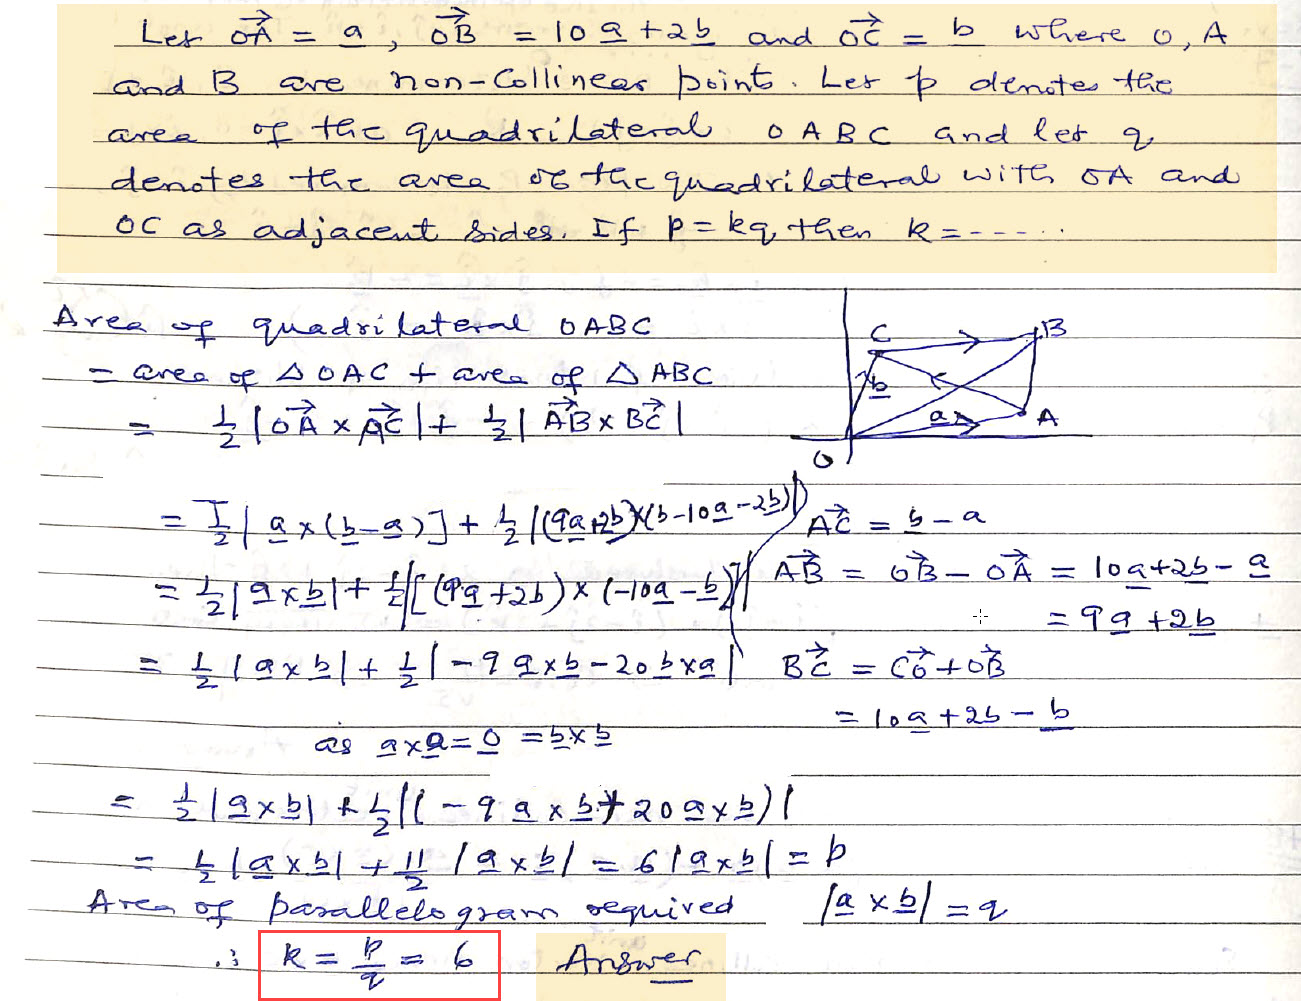 Let OA⃗ = a, OB⃗ = 10a + 2b and OC⃗ = b where O, A
and B are non-Collinear points. Let p denotes the
area of the quadrilateral OABC and let q
denotes the area of the quadrilateral with OA and
OC as adjacent sides. If p = kq then k = -----..
Area of quadrilateral OABC
= area of △OAC + area of △ABC
= 1/2 |OA⃗ × AC⃗| + 1/2 |AB⃗ × BC⃗|
C B
b
a A
O
= 1/2 |a × (b - a)] + 1/2 |(9a+2b)×(b-10a-2b)|
AC⃗ = b - a
= 1/2 |a×b| + 1/2 |[(9a+2b) × (-10a - b)]|
AB⃗ = OB⃗ - OA⃗ = 10a+2b - a
= 9a + 2b
= 1/2 |a×b| + 1/2 |-9a×b - 20b×a|
BC⃗ = CO⃗ + OB⃗
= 10a + 2b - b
as a×a = 0 = b×b
= 1/2 |a×b| + 1/2 |(-9a×b + 20a×b)|
= 1/2 |a×b| + 11/2 |a×b| = 6|a×b| = p
Area of parallelogram required |a×b| = q
∴ k = p/q = 6 Answer